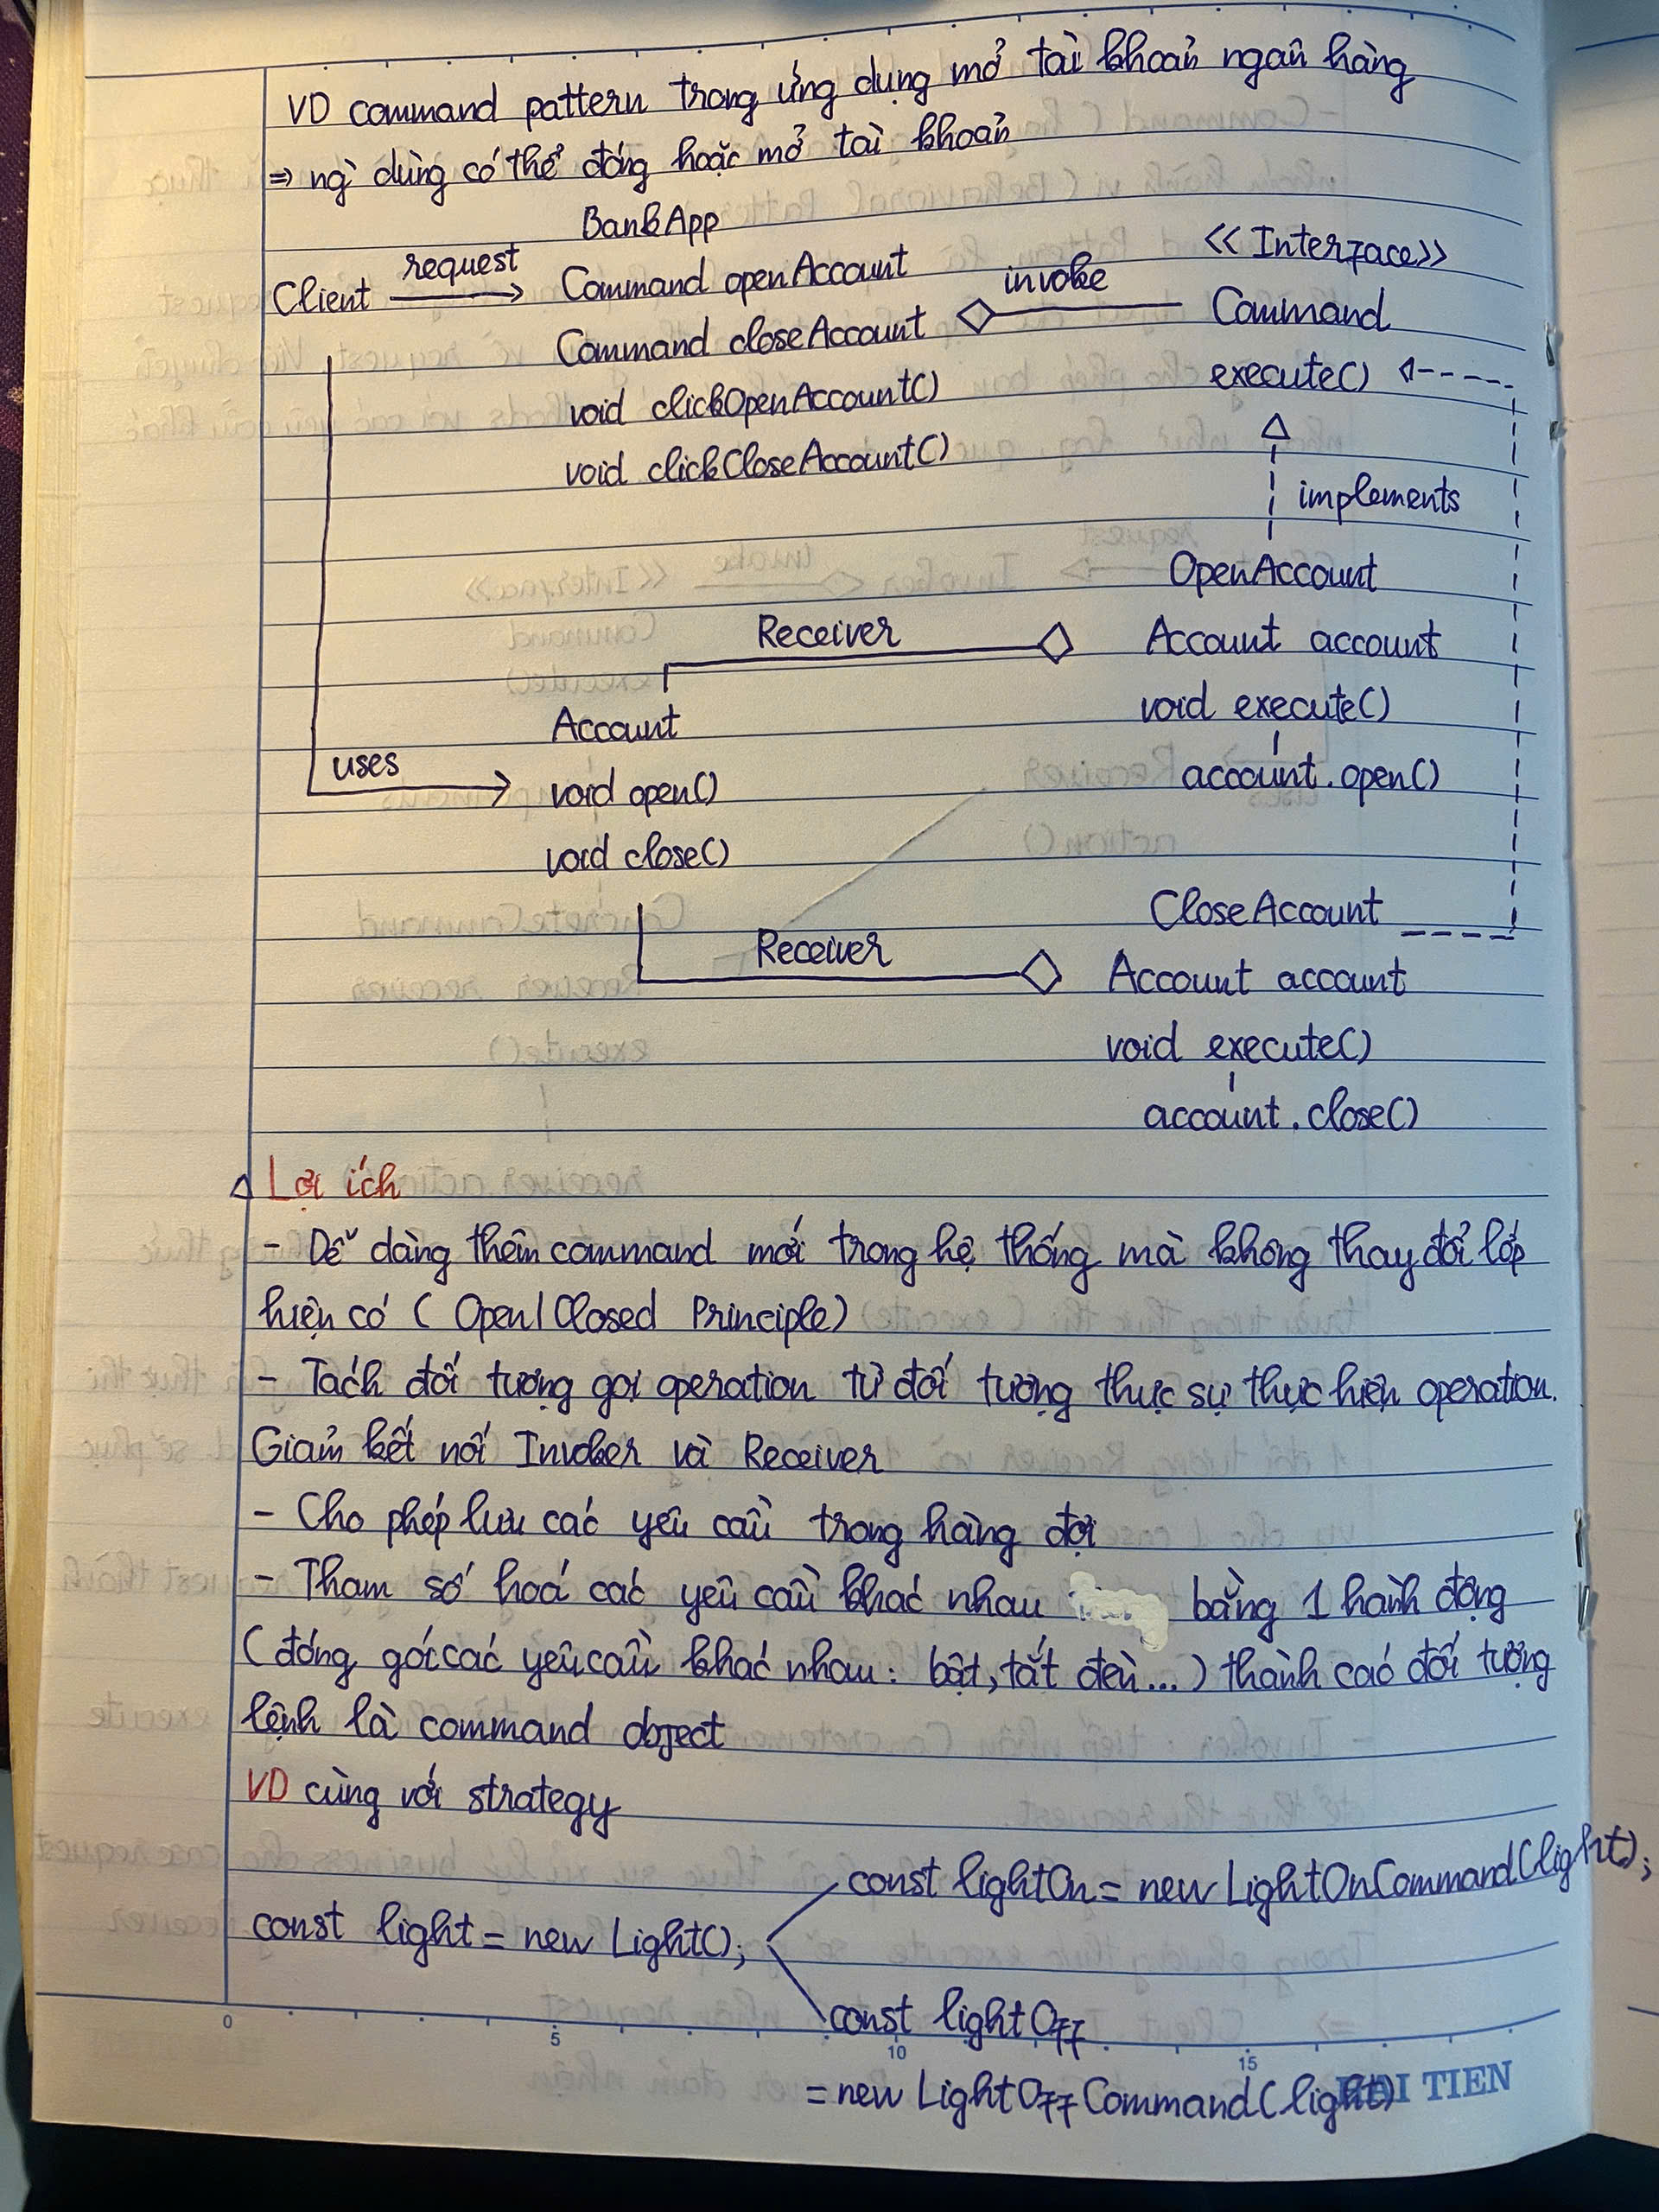 VD command pattern trong ứng dụng mở tài khoản ngân hàng
⇒ ng` dùng có thể đóng hoặc mở tài khoản
BankApp
<<Interface>>
Client request Command openAccount invoke
Command closeAccount Command
void clickOpenAccount() execute()
void clickCloseAccount()
implements
OpenAccount
Receiver Account account
void execute()
Account
uses void open() account.open()
void close()
CloseAccount
Receiver Account account
void execute()
account.close()
Lợi ích
- Dễ dàng thêm command mới trong hệ thống mà không thay đổi lớp
hiện có (Open/Closed Principle)
- Tách đối tượng gọi operation từ đối tượng thực sự thực hiện operation.
Giảm kết nối Invoker và Receiver
- Cho phép lưu các yêu cầu trong hàng đợi
- Tham số hoá các yêu cầu khác nhau bằng 1 hành động
(đóng gói các yêu cầu khác nhau: bật, tắt đèn...) thành các đối tượng
lệnh là command object
VD cùng với strategy
const lightOn = new LightOnCommand(light);
const light = new Light();
const lightOff
= new LightOffCommand(light)
0 5 10 15
HAI TIEN